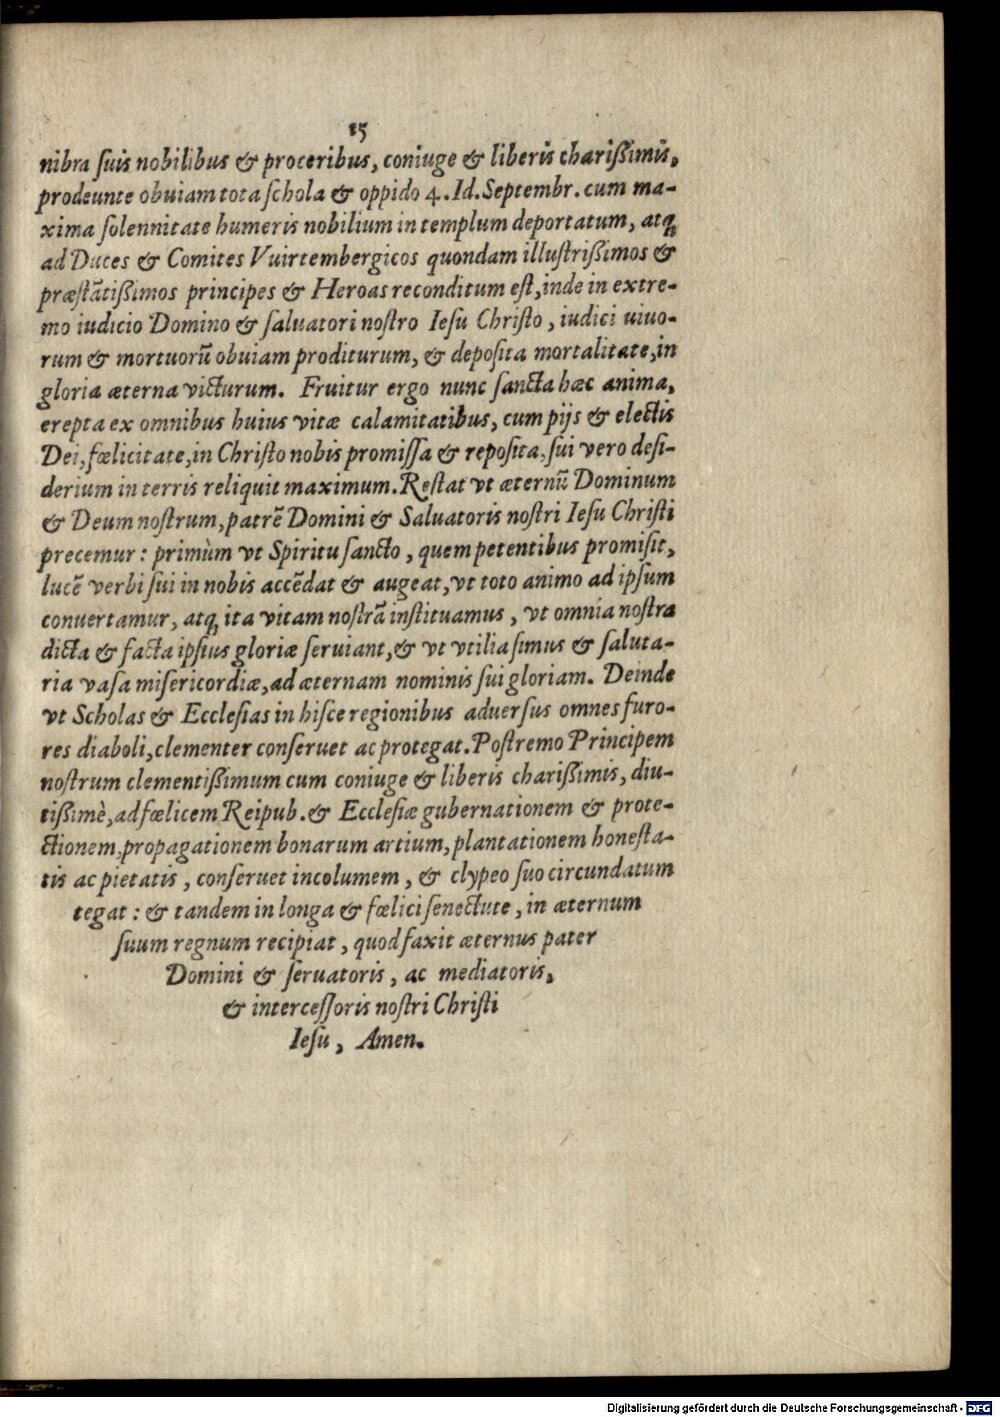 15
nibra suis nobilibus & proceribus, coniuge & liberis charißimis,
prodeunte obuiam tota schola & oppido 4. Id. Septembr. cum ma-
xima solennitate humeris nobilium in templum deportatum, atq́
ad Duces & Comites Vuirtembergicos quondam illustrißimos &
præstãtißimos principes & Heroas reconditum est, inde in extre-
mo iudicio Domino & saluatori nostro Iesu Christo, iudici uiuo-
rum & mortuorũ obuiam proditurum, & deposita mortalitate, in
gloria æterna victurum. Fruitur ergo nunc sancta hæc anima,
erepta ex omnibus huius vitæ calamitatibus, cum pijs & electis
Dei, fœlicitate, in Christo nobis promissa & reposita, sui vero desi-
derium in terris reliquit maximum. Restat vt æternũ Dominum
& Deum nostrum, patrẽ Domini & Saluatoris nostri Iesu Christi
precemur: primùm vt Spiritu sancto, quem petentibus promisit,
lucẽ verbi sui in nobis accẽdat & augeat, vt toto animo ad ipsum
conuertamur, atq́ ita vitam nostrã instituamus, vt omnia nostra
dicta & facta ipsius gloriæ seruiant, & vt vtilia simus & saluta-
ria vasa misericordiæ, ad æternam nominis sui gloriam. Deinde
vt Scholas & Ecclesias in hisce regionibus aduersus omnes furo-
res diaboli, clementer conseruet ac protegat. Postremo Principem
nostrum clementißimum cum coniuge & liberis charißimis, diu-
tißimè, ad fœlicem Reipub. & Ecclesiæ gubernationem & prote-
ctionem, propagationem bonarum artium, plantationem honesta-
tis ac pietatis, conseruet incolumem, & clypeo suo circundatum
tegat: & tandem in longa & fœlici senectute, in æternum
suum regnum recipiat, quod faxit æternus pater
Domini & seruatoris, ac mediatoris,
& intercessoris nostri Christi
Iesu, Amen.
Digitalisierung gefördert durch die Deutsche Forschungsgemeinschaft - DFG